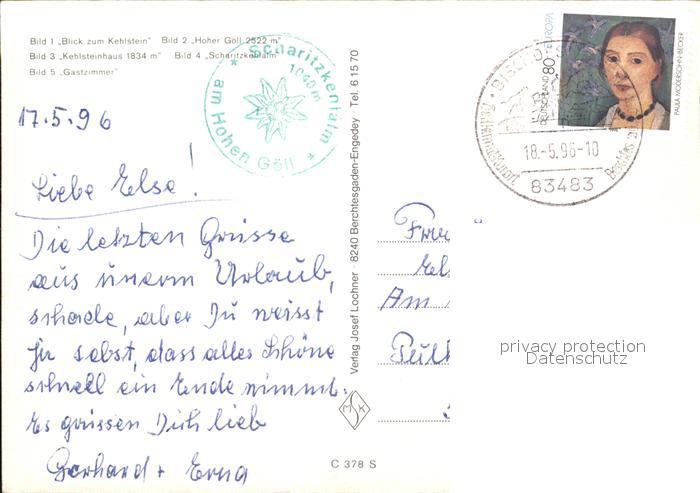 Bild 1 „Blick zum Kehlstein" Bild 2 „Hoher Göll 2522 m"
Bild 3 „Kehlsteinhaus 1834 m" Bild 4 „Scharitzkehlalm"
Bild 5 „Gastzimmer"
Scharitzkehlalm
1040 m
am Hohen Göll
17.5.96
Liebe Else!
Die letzten Grüsse
aus unserm Urlaub,
schade, aber Du weisst
ja selbst, dass alles Schöne
schnell ein Ende nimmt.
Es grüssen Dich lieb
Gerhard + Erna
Verlag Josef Lochner · 8240 Berchtesgaden-Engedey · Tel. 6 15 70
MSK
C 378 S
EUROPA
DEUTSCHLAND 80
PAULA MODERSOHN-BECKER
18.-5.96-10
83483
Am
privacy protection
Datenschutz